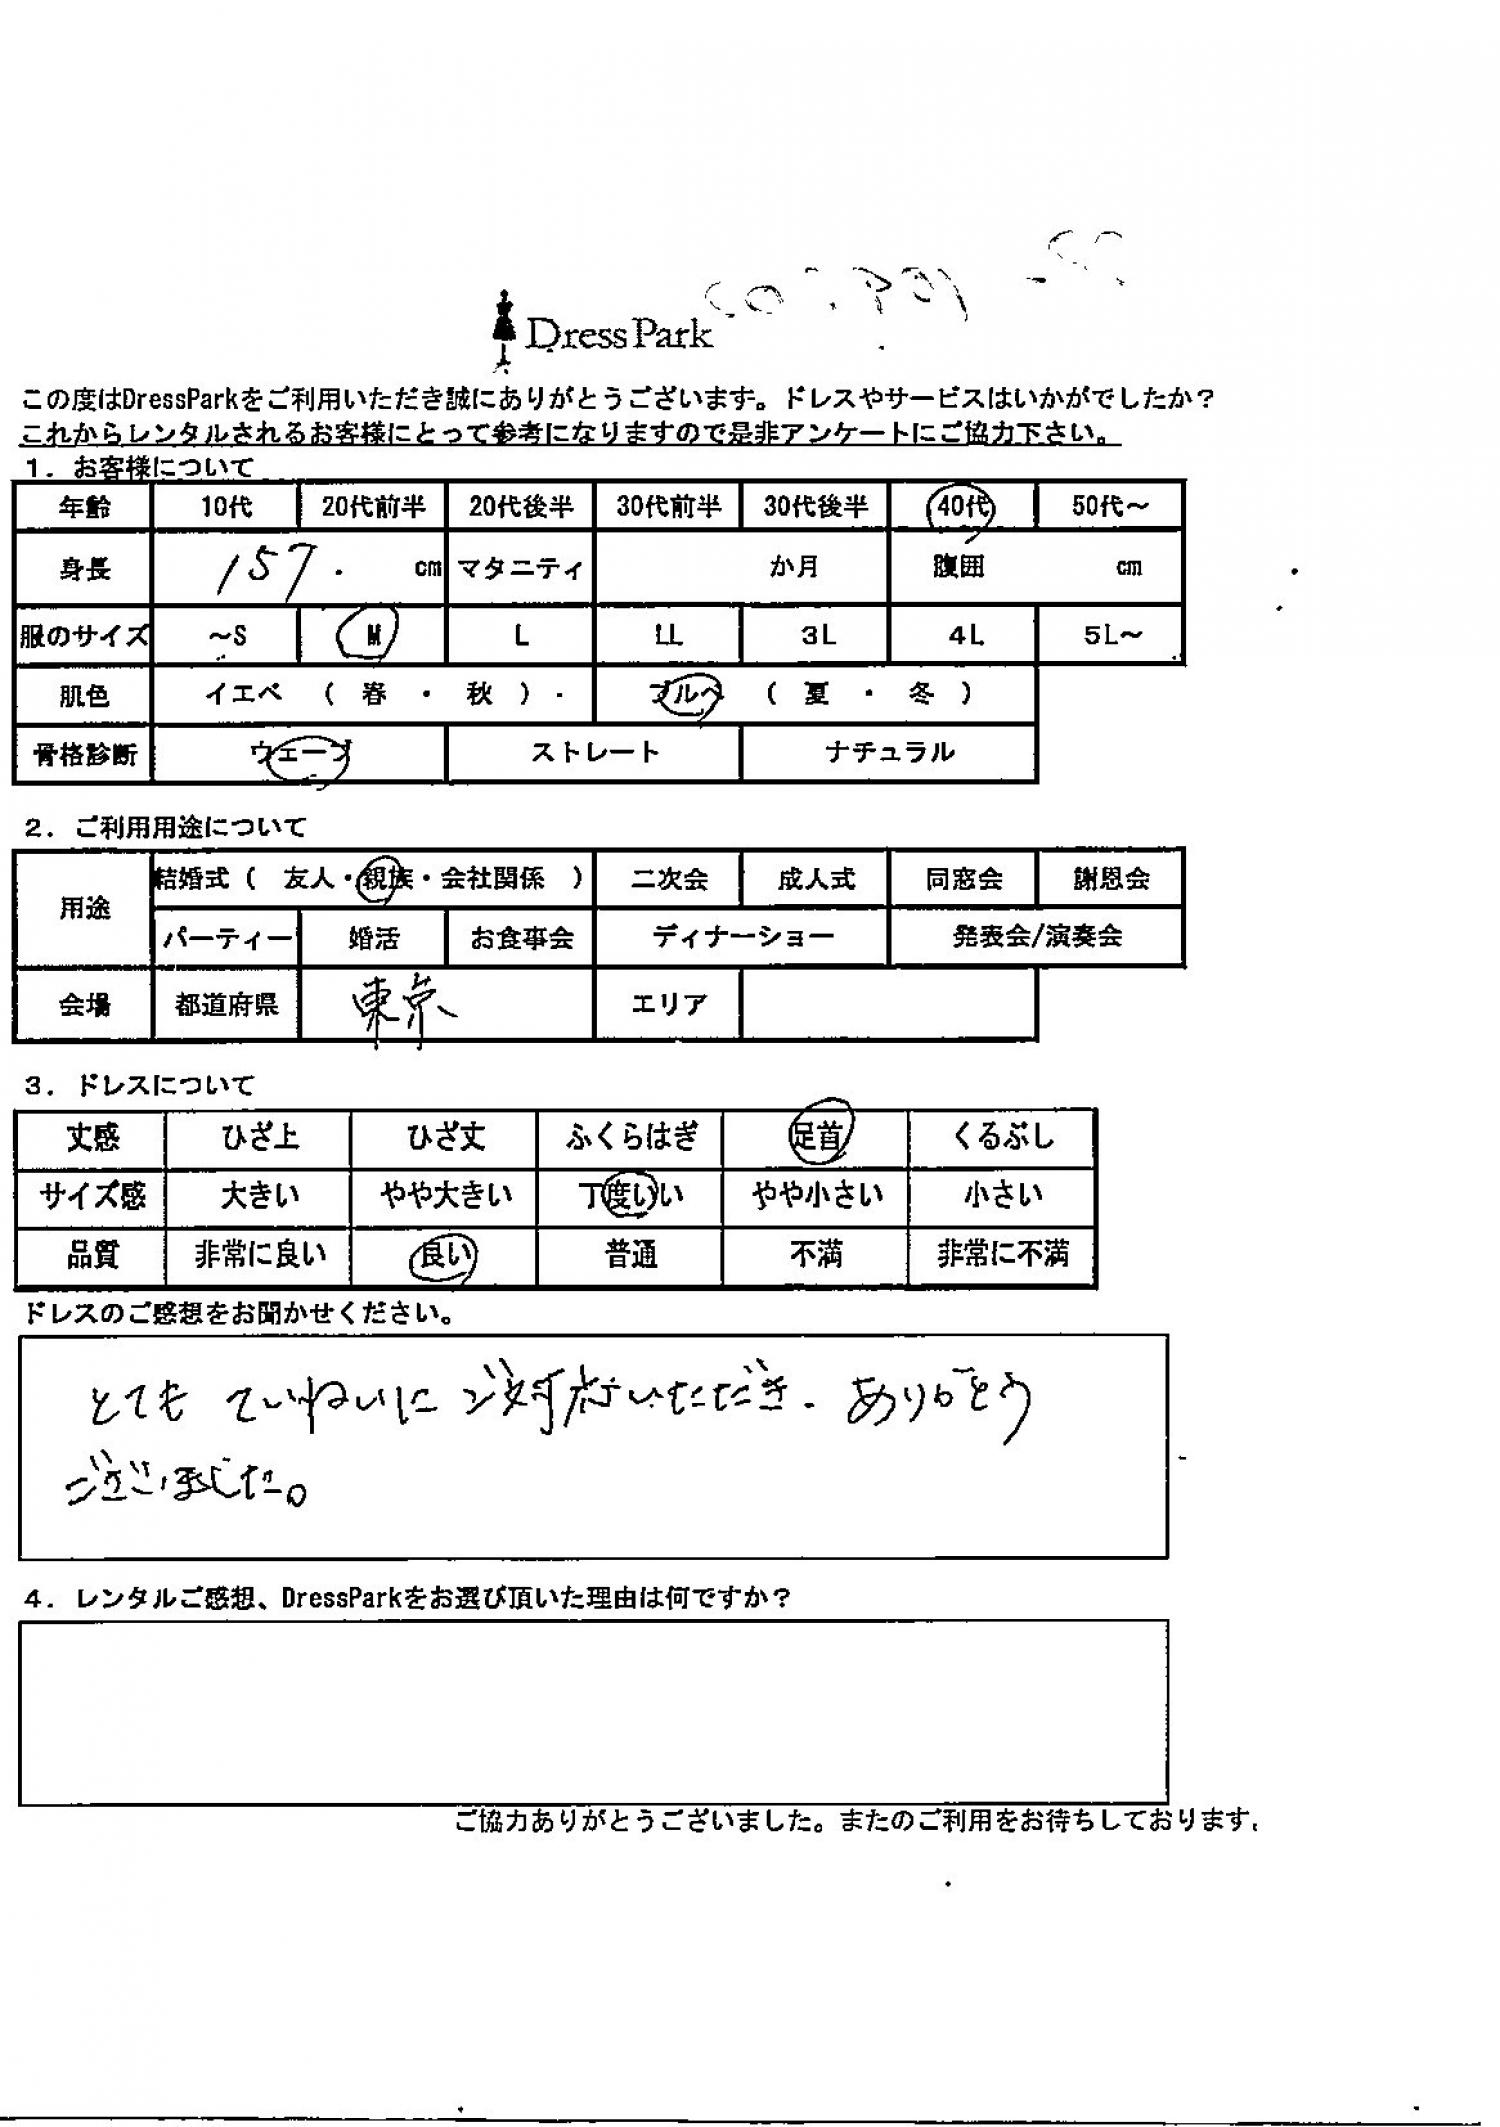 DressPark
この度はDressParkをご利用いただき誠にありがとうございます。ドレスやサービスはいかがでしたか？
これからレンタルされるお客様にとって参考になりますので是非アンケートにご協力下さい。
1．お客様について
年齢 10代 20代前半 20代後半 30代前半 30代後半 40代 50代～
身長 157. cm マタニティ か月 腹囲 cm
服のサイズ ～S M L LL 3L 4L 5L～
肌色 イエベ （ 春 ・ 秋 ） ブルベ （ 夏 ・ 冬 ）
骨格診断 ウェーブ ストレート ナチュラル
2．ご利用用途について
用途 結婚式（ 友人・親族・会社関係 ） 二次会 成人式 同窓会 謝恩会
パーティー 婚活 お食事会 ディナーショー 発表会/演奏会
会場 都道府県 東京 エリア
3．ドレスについて
丈感 ひざ上 ひざ丈 ふくらはぎ 足首 くるぶし
サイズ感 大きい やや大きい 丁度いい やや小さい 小さい
品質 非常に良い 良い 普通 不満 非常に不満
ドレスのご感想をお聞かせください。
とても ていねいに ご対応いただき、ありがとう
ございました。
4．レンタルご感想、DressParkをお選び頂いた理由は何ですか？
ご協力ありがとうございました。またのご利用をお待ちしております。